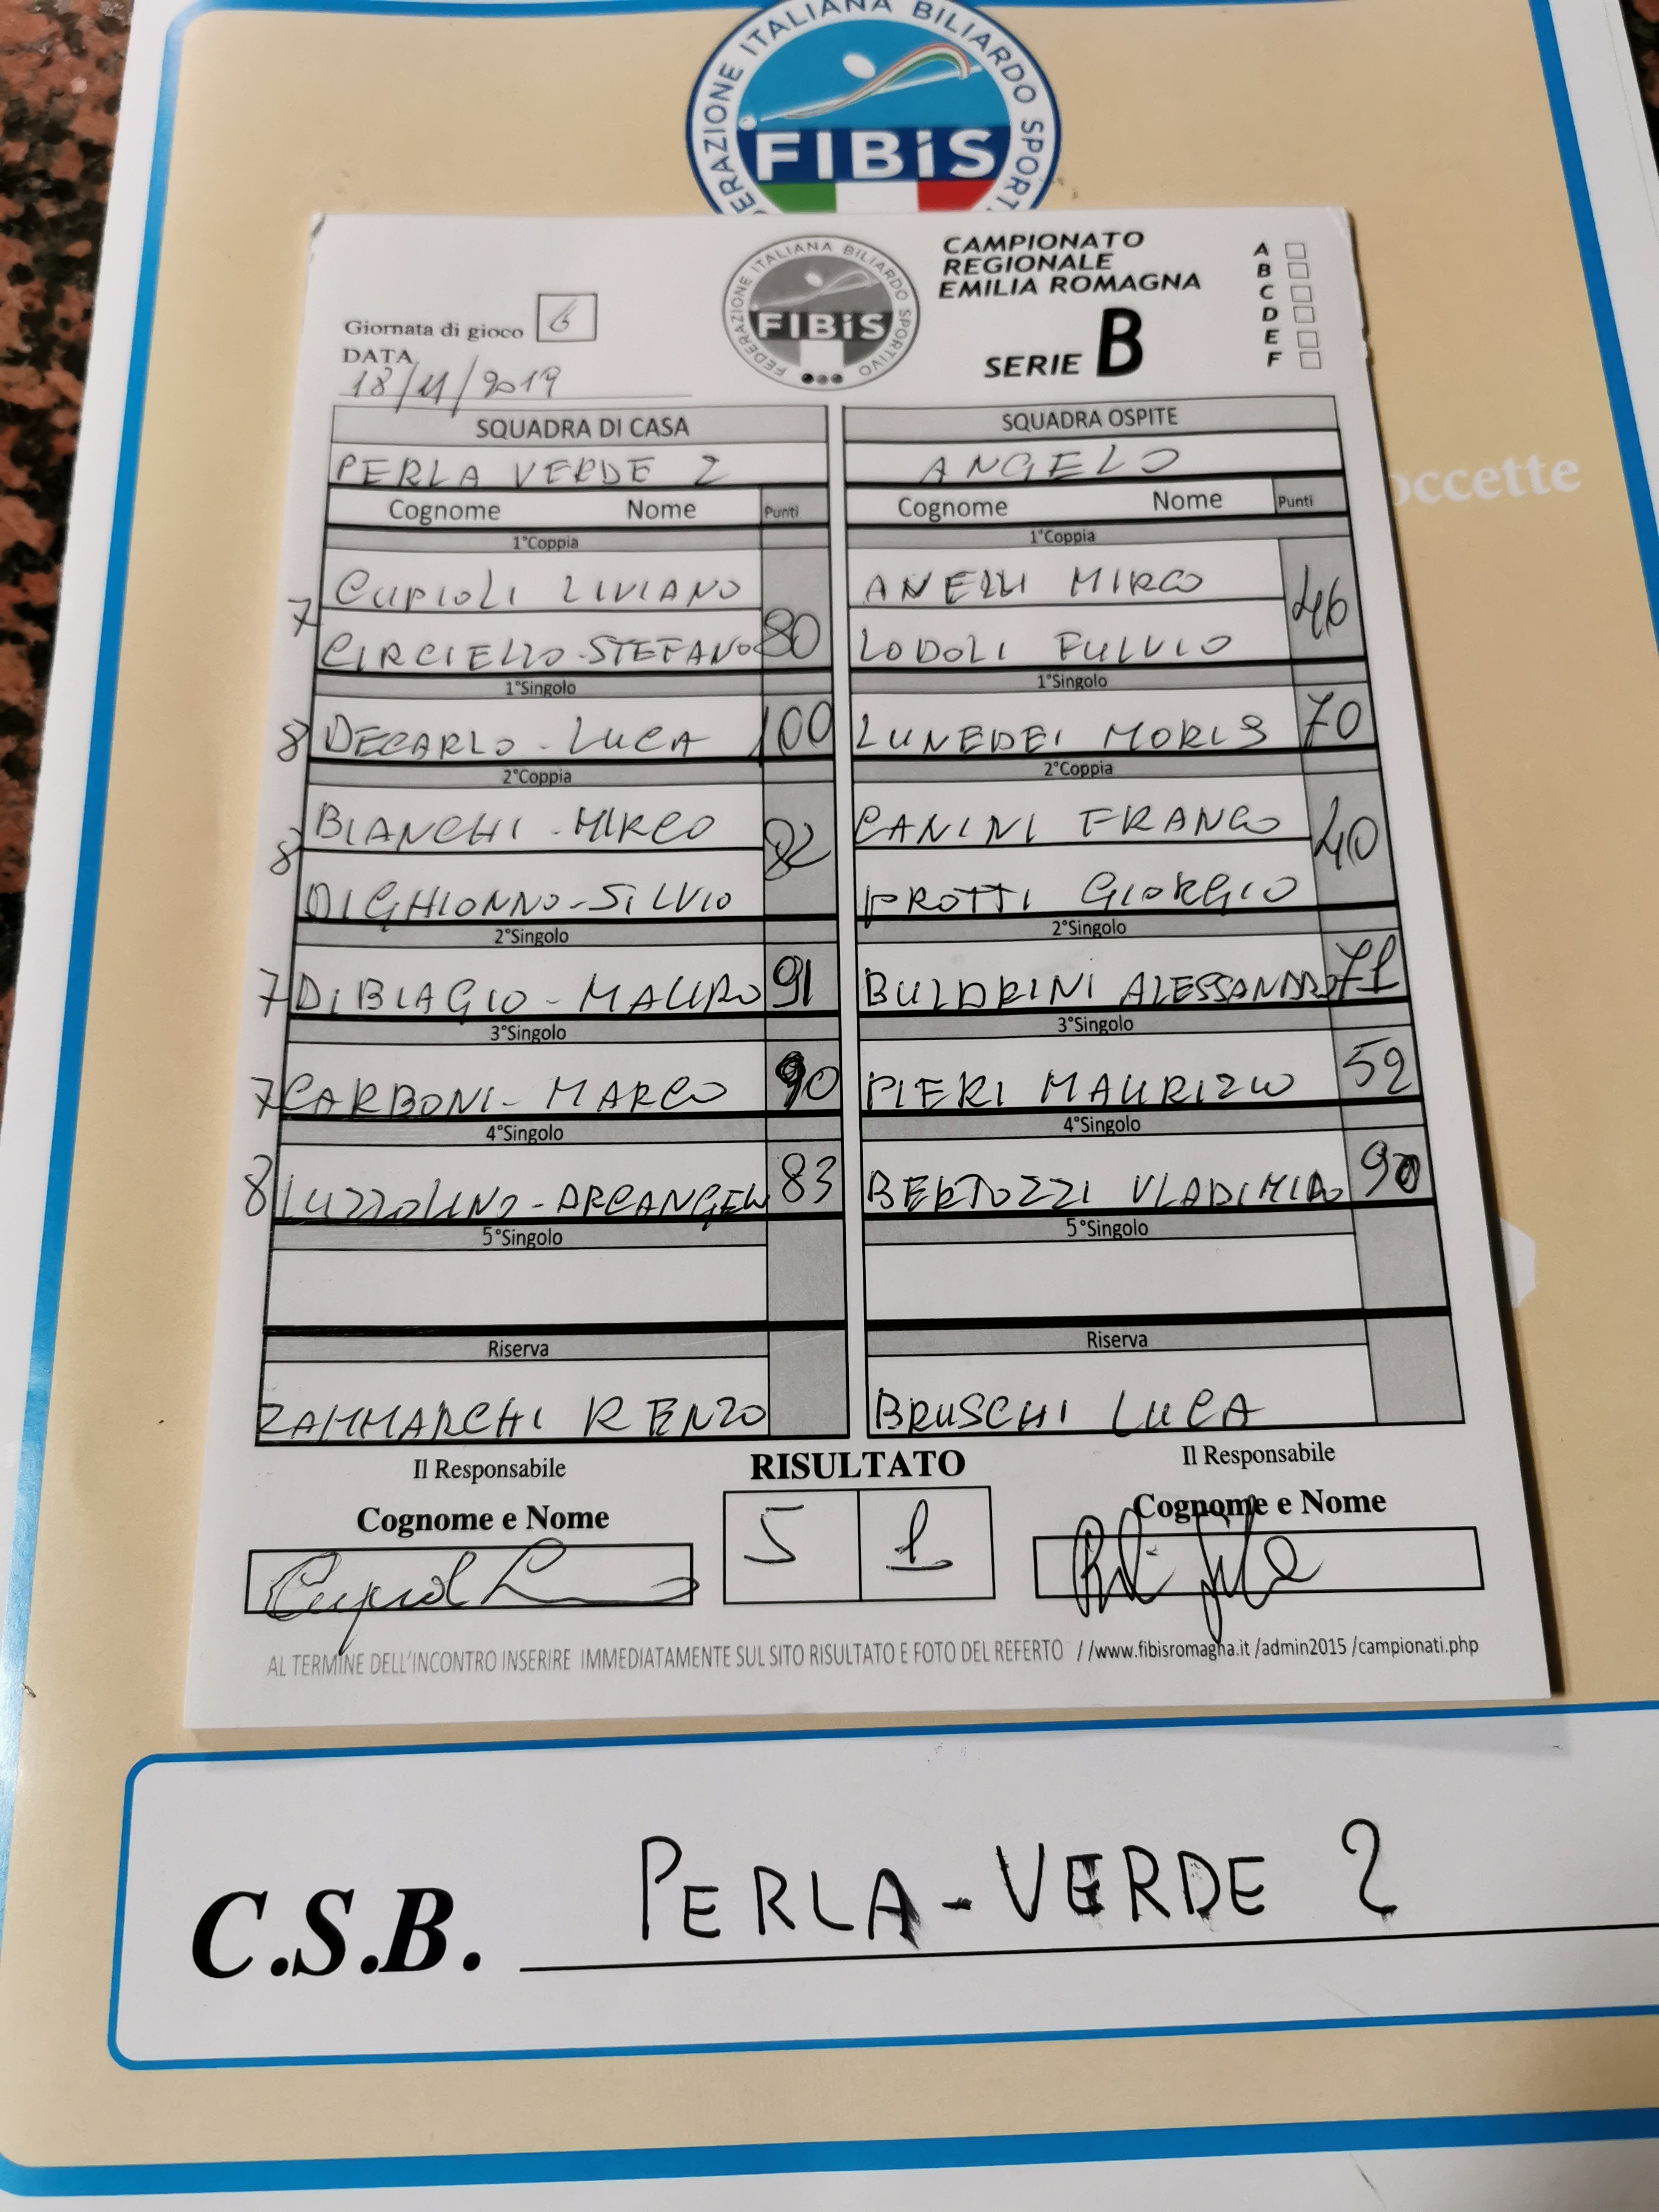 FEDERAZIONE ITALIANA BILIARDO SPORTIVO
FIBiS
occette
Giornata di gioco 6
DATA
18/11/2019
FEDERAZIONE ITALIANA BILIARDO SPORTIVO
FIBiS
CAMPIONATO
REGIONALE
EMILIA ROMAGNA
SERIE B
A
B
C
D
E
F
SQUADRA DI CASA SQUADRA OSPITE
PERLA VERDE 2 ANGELO
Cognome Nome Punti Cognome Nome Punti
1°Coppia 1°Coppia
CUPIOLI LIVIANO ANELLI MIRCO
7 80 46
CIRCIELLO-STEFANO LODOLI FULVIO
1°Singolo 1°Singolo
8 DECARLO-LUCA 100 LUNEDEI MORIS 70
2°Coppia 2°Coppia
BIANCHI-MIRCO CANINI FRANCO
8 82 40
DIGHIONNO-SILVIO PROTTI GIORGIO
2°Singolo 2°Singolo
7 DIBIAGIO-MAURO 91 BULDRINI ALESSANDRO 71
3°Singolo 3°Singolo
7 CARBONI-MARCO 90 PIERI MAURIZIO 52
4°Singolo 4°Singolo
8 IUZZOLINO-ARCANGELO 83 BERTOZZI VLADIMIRO 90
5°Singolo 5°Singolo
Riserva Riserva
ZAMMARCHI RENZO BRUSCHI LUCA
Il Responsabile RISULTATO Il Responsabile
Cognome e Nome Cognome e Nome
5 1
AL TERMINE DELL'INCONTRO INSERIRE IMMEDIATAMENTE SUL SITO RISULTATO E FOTO DEL REFERTO //www.fibisromagna.it /admin2015 /campionati.php
C.S.B. PERLA-VERDE 2